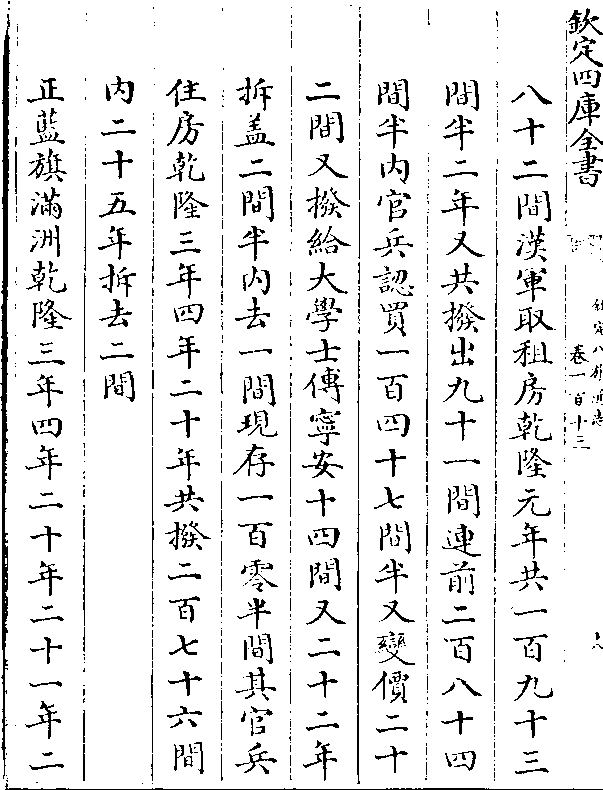 欽定四庫全書
欽定八旗通志
卷一百十三
八十二間漢軍取租房乾隆元年共一百九十三
間半二年又共撥出九十一間連前二百八十四
間半内官兵認買一百四十七間半又變價二十
二間又撥給大學士傅寧安十四間又二十二年
拆盖二間半内去一間現存一百零半間其官兵
住房乾隆三年四年二十年共撥二百七十六間
内二十五年拆去二間
正藍旗滿洲乾隆三年四年二十年二十一年二